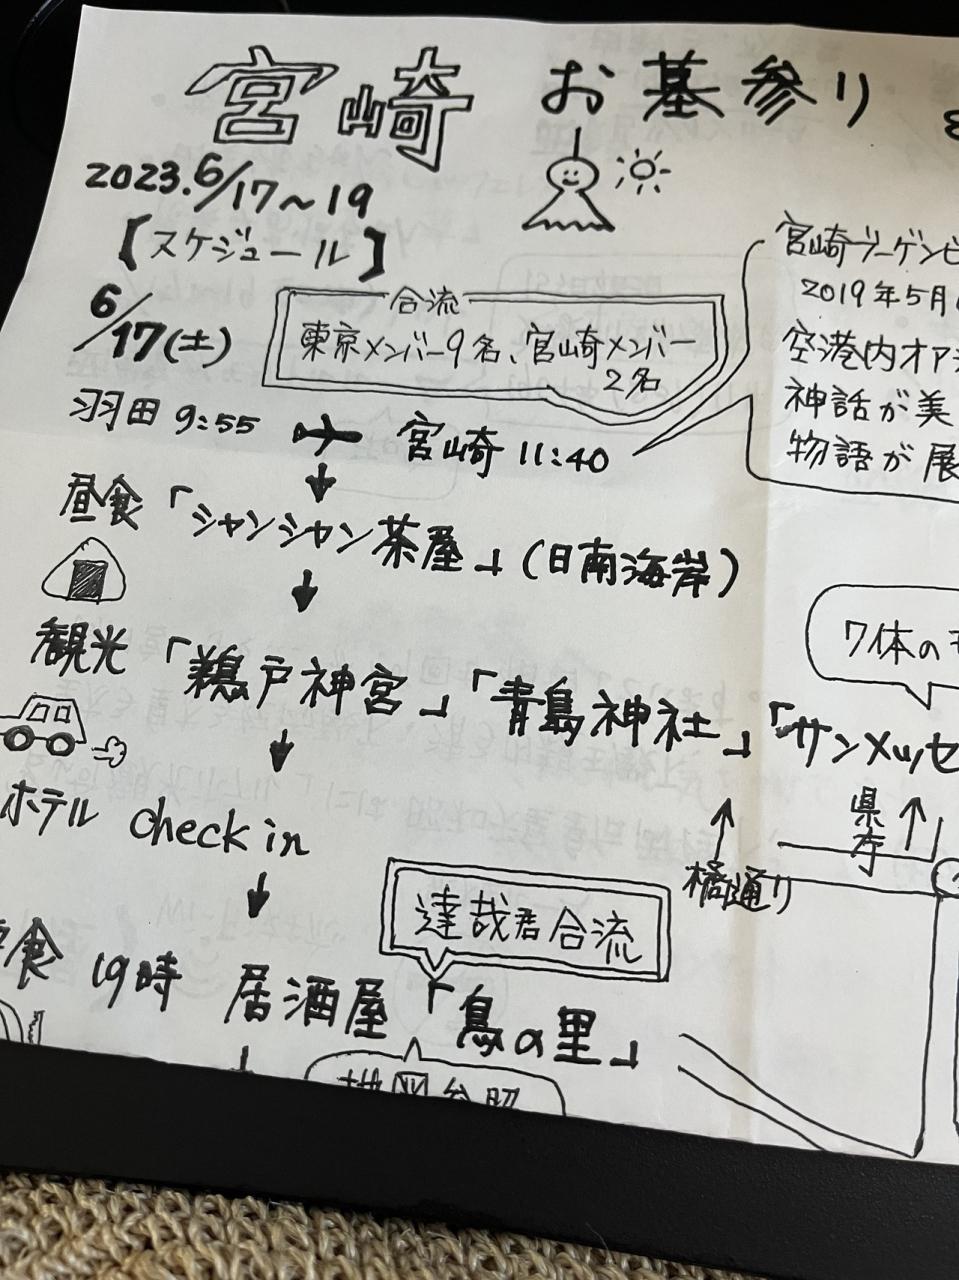 宮崎 お墓参り
2023.6/17～19
【スケジュール】
6/17(土)
合流
東京メンバー9名、宮崎メンバー
2名
羽田 9:55 宮崎 11:40
宮崎ブーゲンビ
2019年5月
空港内オアシ
神話が美
物語が展
昼食「シャンシャン茶屋」(日南海岸)
7体のモ
観光「鵜戸神宮」「青島神社」「サンメッセ
ホテル check in
橘通り
県庁
達哉君合流
夕食 19時 居酒屋「鳥の里」
地図参照